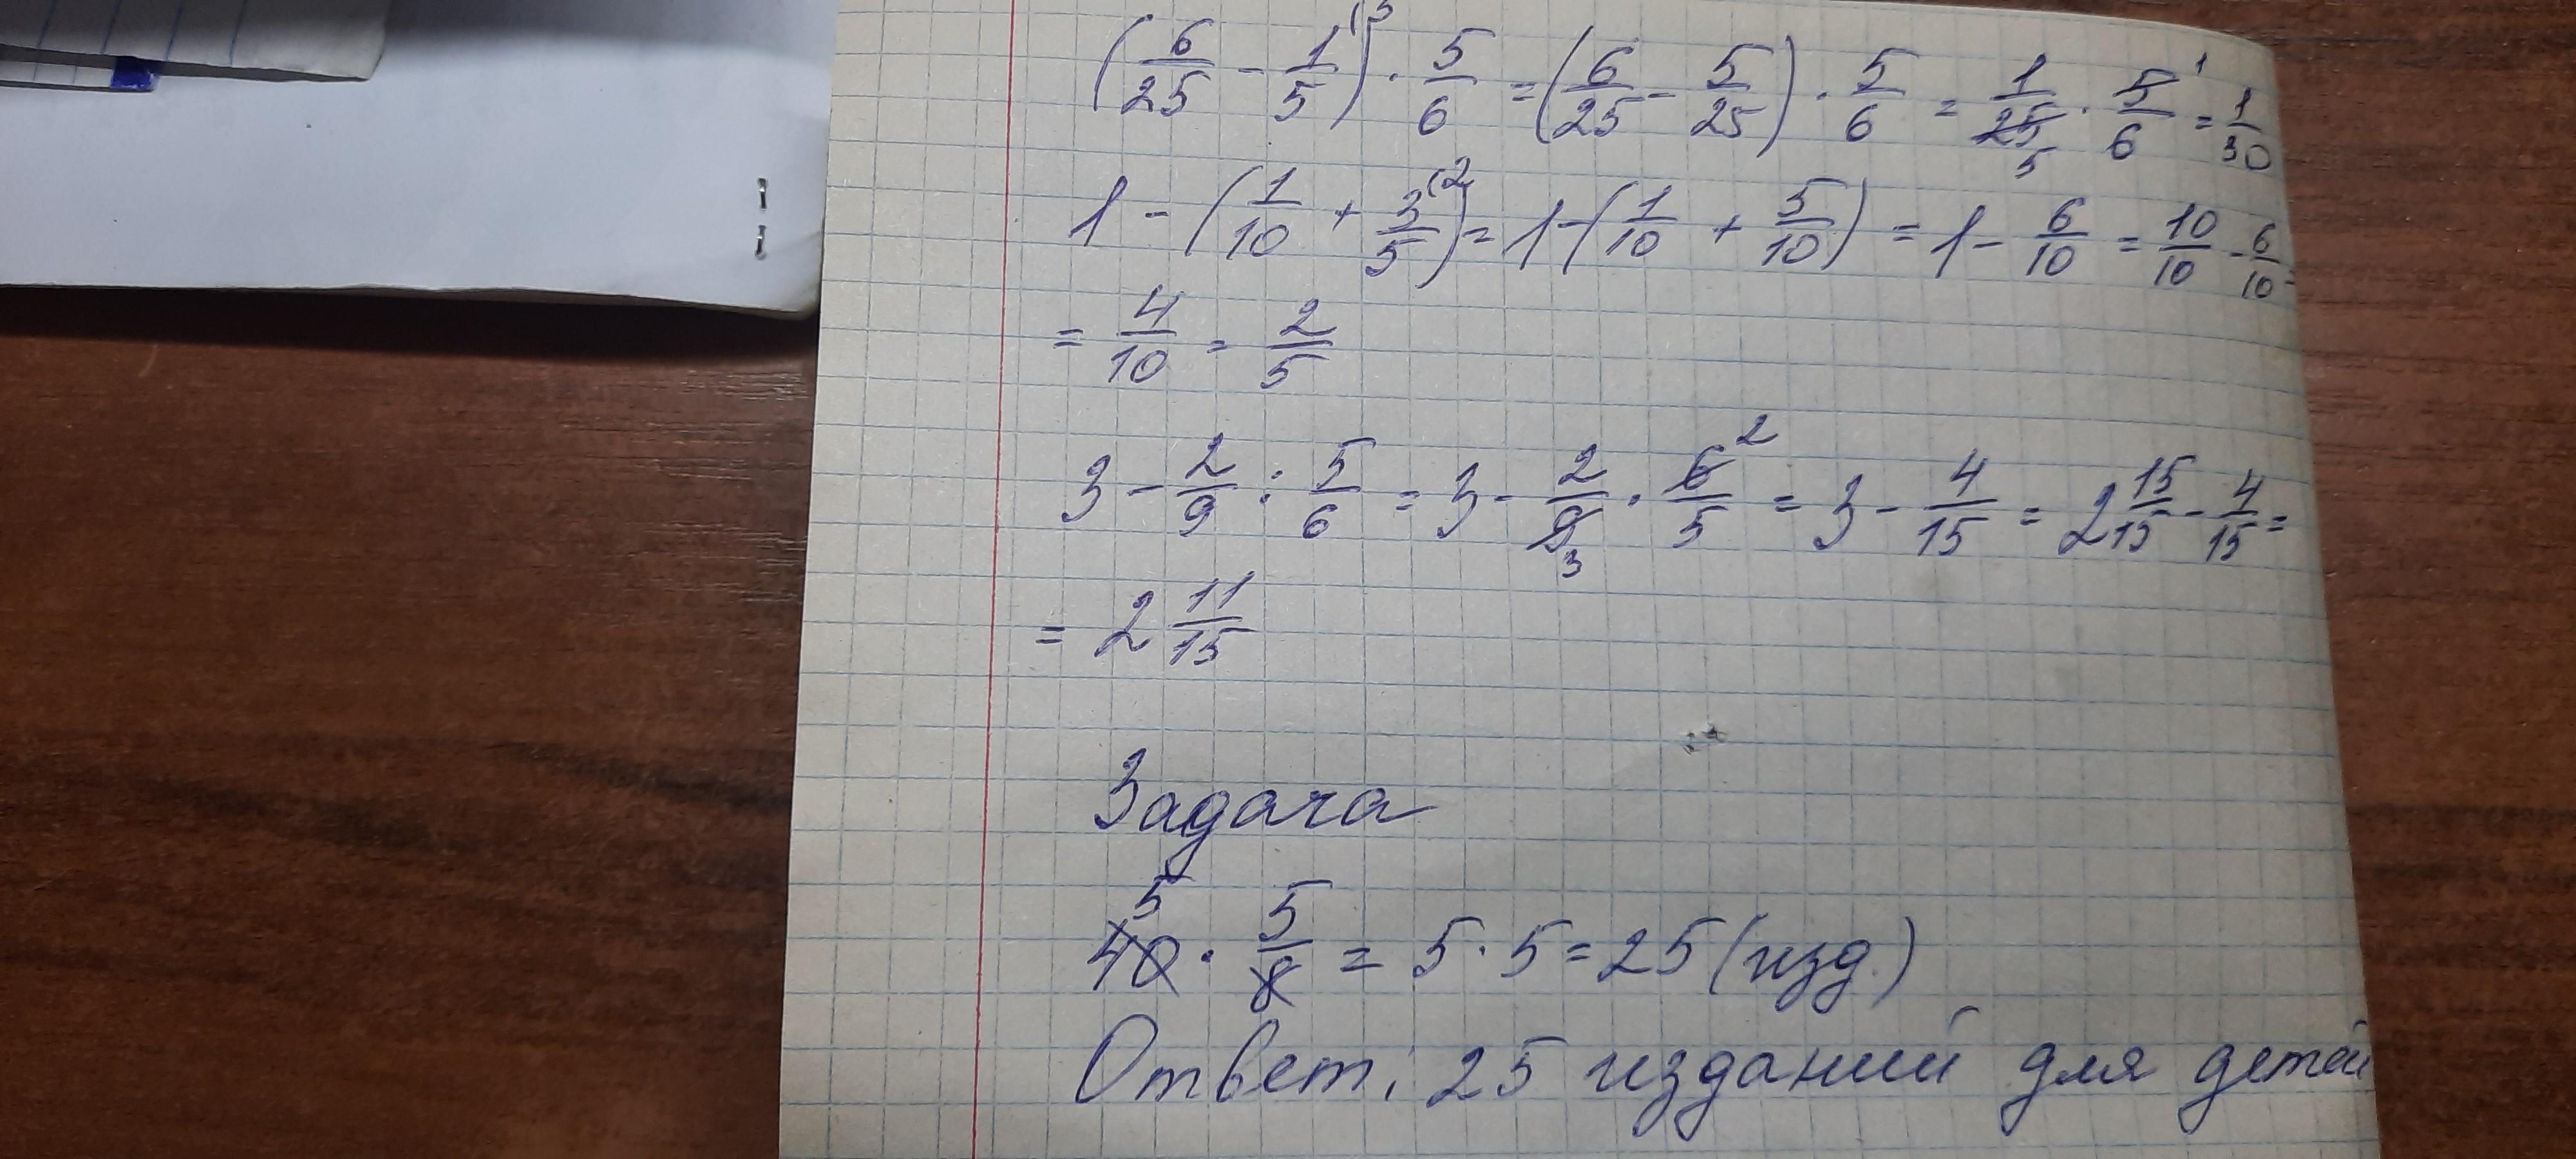 (6/25 - 1/5^(5) · 5/6 = (6/25 - 5/25) · 5/6 = 1/25 5 · 5/6 1 = 1/30
1 - (1/10 + 3/5^(2) = 1 - (1/10 + 5/10) = 1 - 6/10 = 10/10 - 6/10 =
= 4/10 = 2/5
3 - 2/9 : 5/6 = 3 - 2/9 3 · 6 2/5 = 3 - 4/15 = 2 15/15 - 4/15 =
= 2 11/15
Задача
5
40 · 5/8 = 5 · 5 = 25 (изд.)
Ответ: 25 изданий для детей